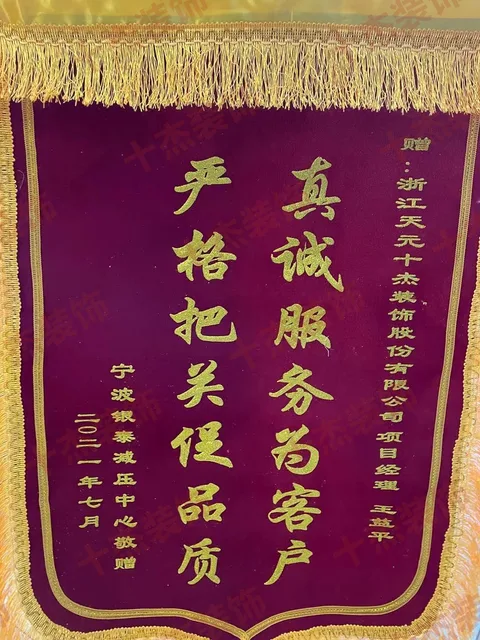 赠：浙江天元十杰装饰股份有限公司项目经理 王益平
真诚服务为客户
严格把关促品质
宁波银泰减压中心敬赠
二〇二一年七月
十杰装饰